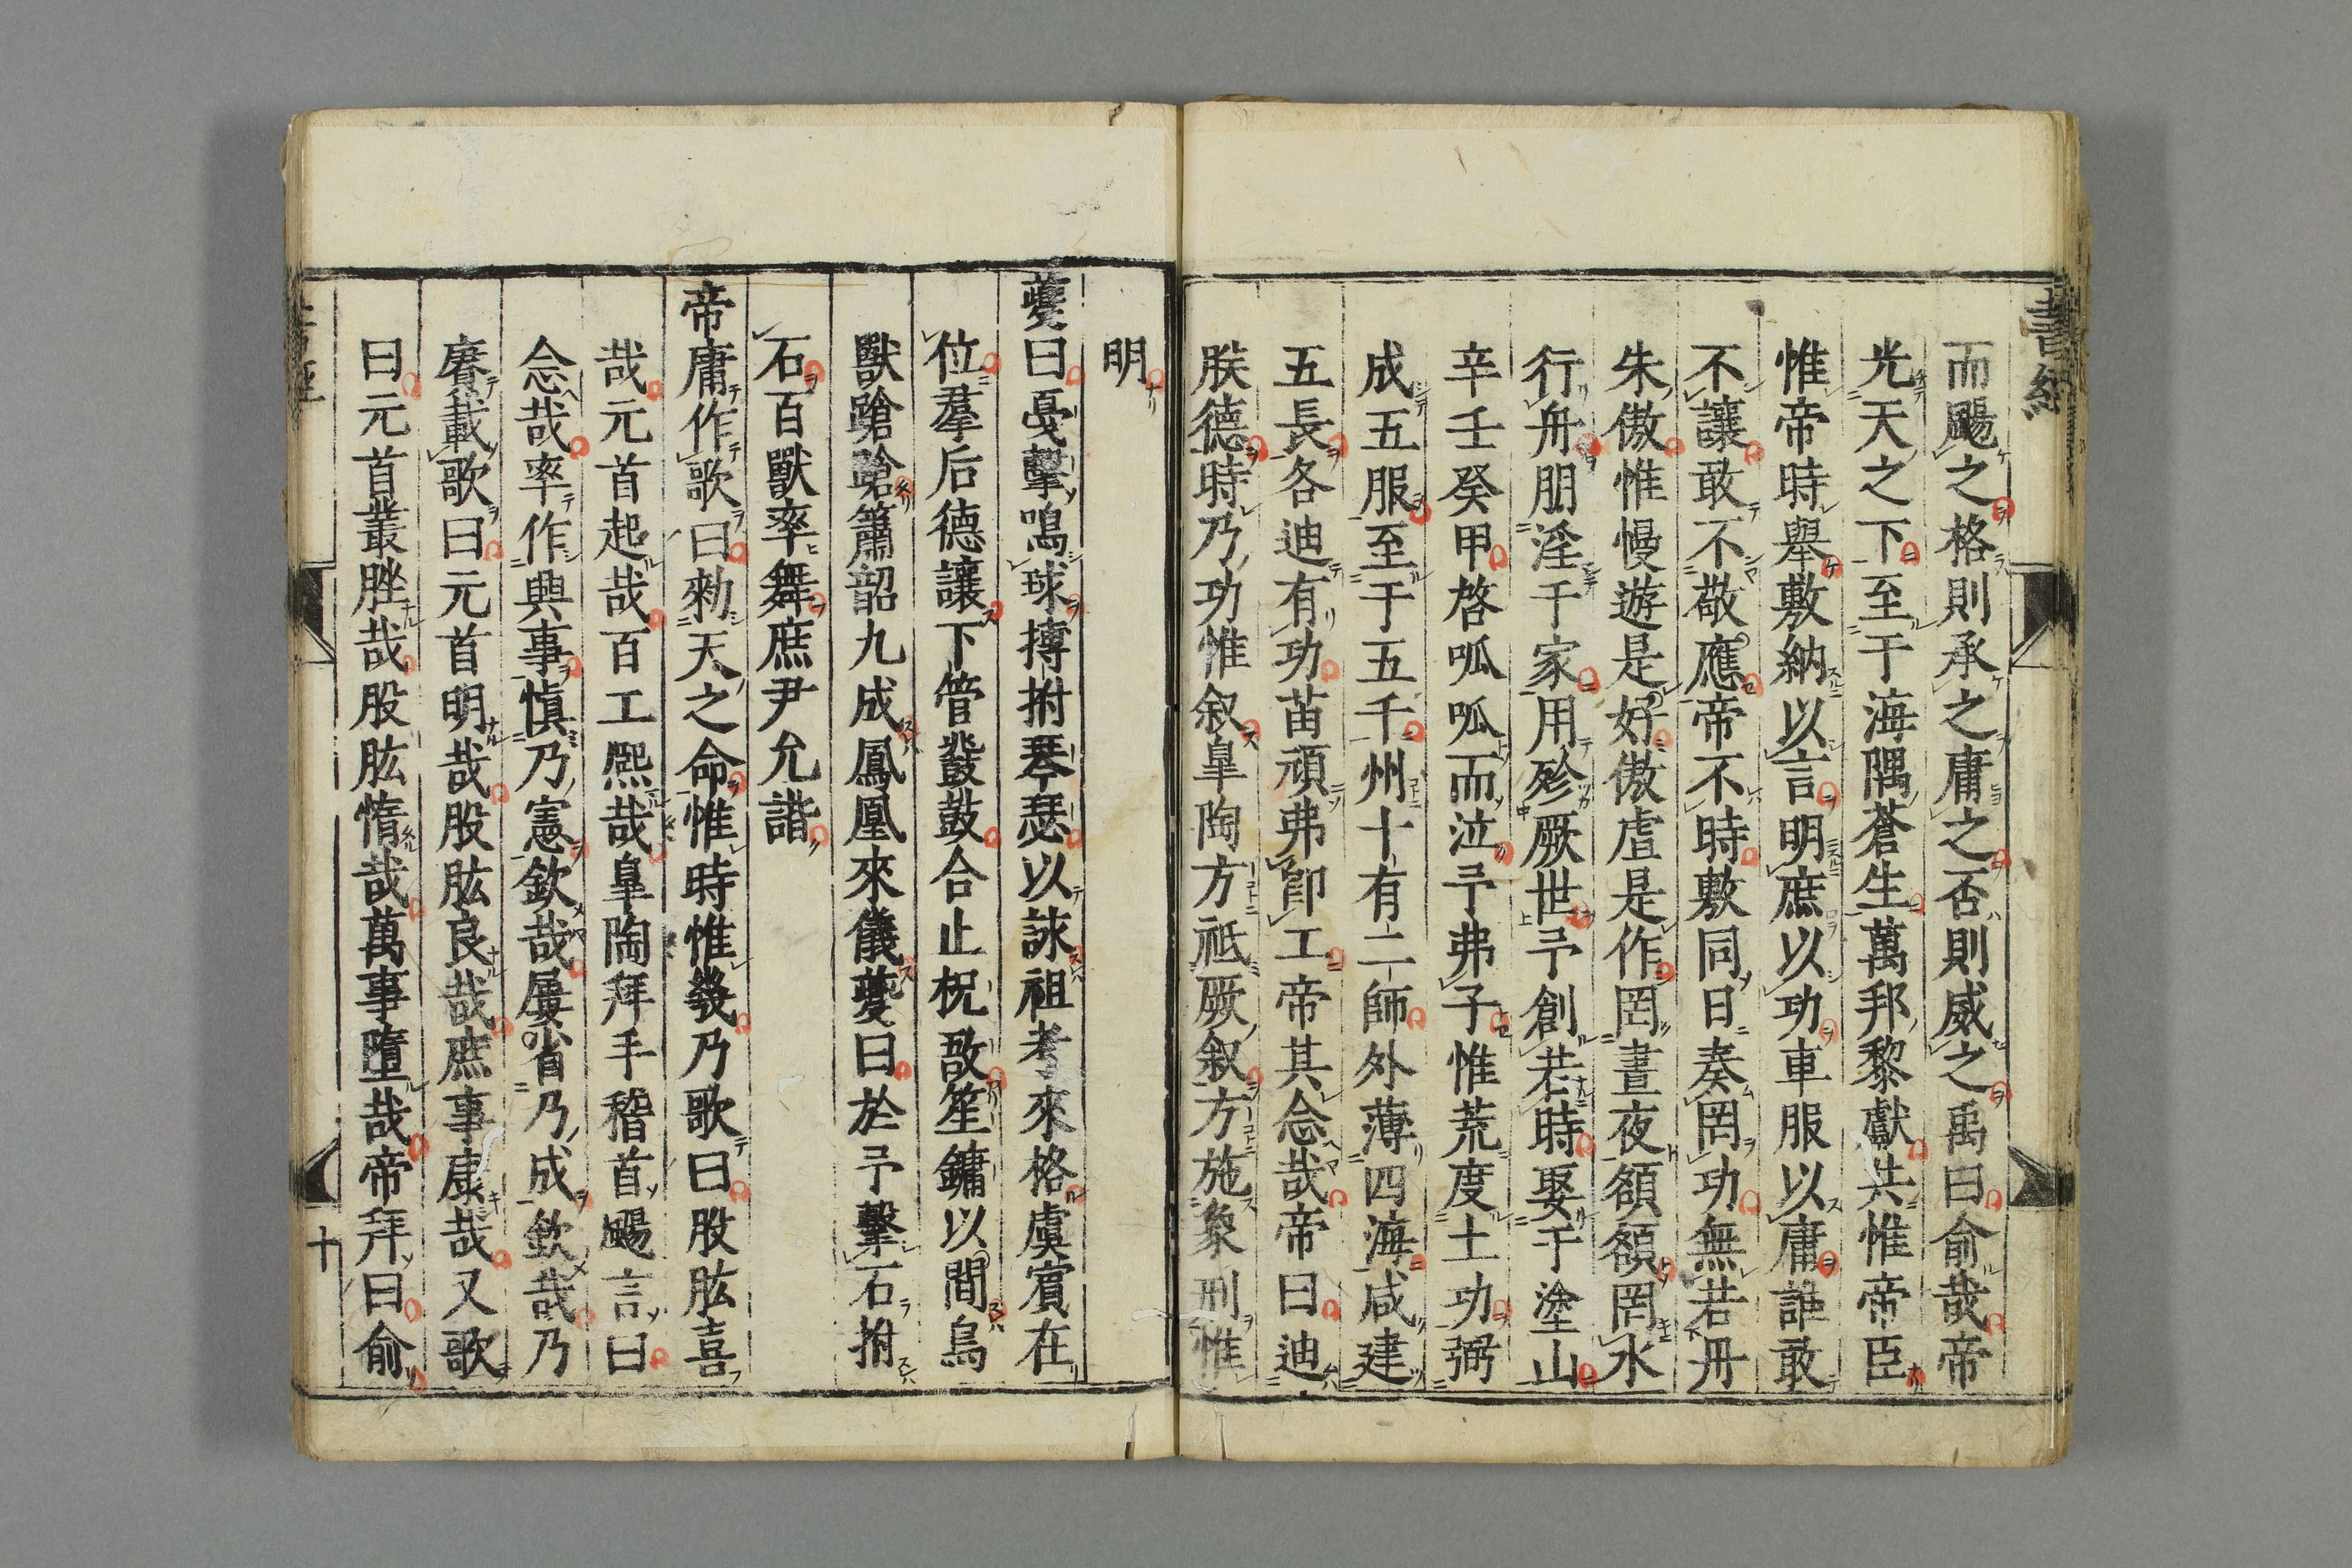 書經
而颺之格則承之庸之否則威之禹曰俞哉帝
光天之下至于海隅蒼生萬邦黎獻共惟帝臣
惟帝時舉敷納以言明庶以功車服以庸誰敢
不讓敢不敬應帝不時敷同日奏罔功無若丹
朱傲惟慢遊是好傲虐是作罔晝夜頟頟罔水
行舟朋淫于家用殄厥世予創若時娶于塗山
辛壬癸甲啓呱呱而泣予弗子惟荒度土功弼
成五服至于五千州十有二師外薄四海咸建
五長各迪有功苗頑弗卽工帝其念哉帝曰迪
朕德時乃功惟叙皐陶方祗厥叙方施象刑惟
明
夔曰戛擊鳴球搏拊琴瑟以詠祖考來格虞賓在
位羣后德讓下管鼗鼓合止柷敔笙鏞以間鳥
獸蹌蹌簫韶九成鳳凰來儀夔曰於予擊石拊
石百獸率舞庶尹允諧
帝庸作歌曰勑天之命惟時惟幾乃歌曰股肱喜
哉元首起哉百工熙哉皐陶拜手稽首颺言曰
念哉率作興事愼乃憲欽哉屢省乃成欽哉乃
賡載歌曰元首明哉股肱良哉庶事康哉又歌
曰元首叢脞哉股肱惰哉萬事墮哉帝拜曰俞
十